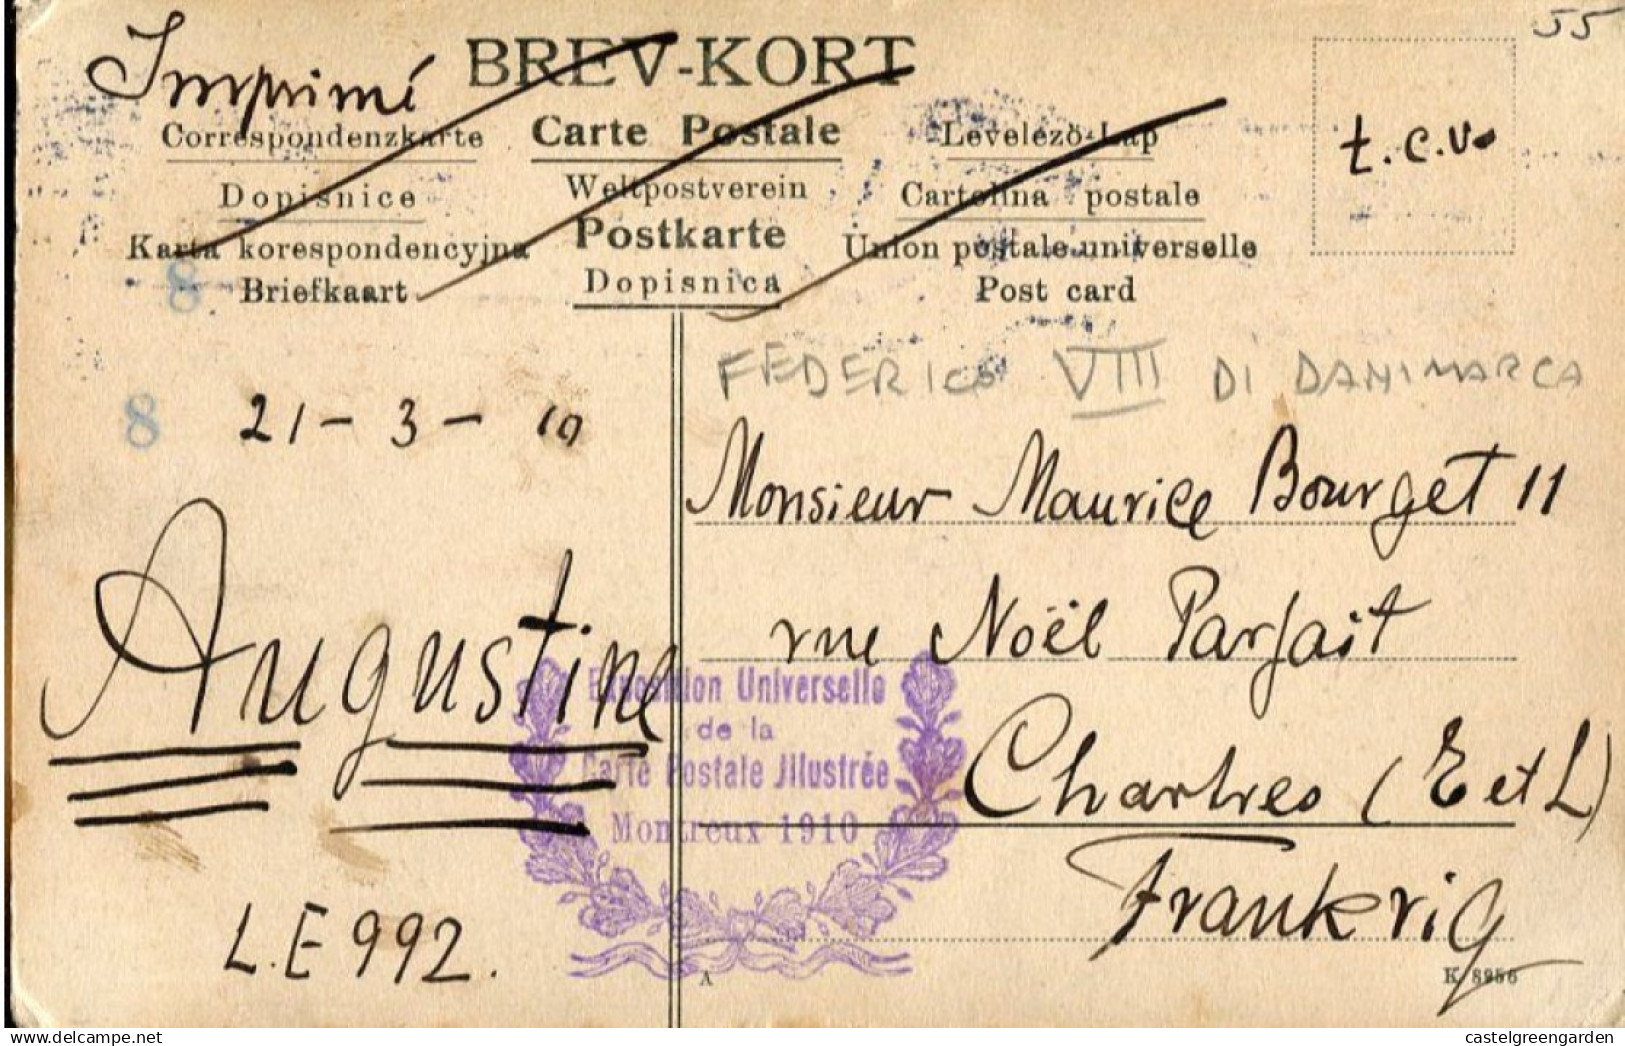 55
Imprimé
BREV-KORT
Correspondenzkarte
Carte Postale
Levelezö-Lap
t.c.v.
Dopisnice
Weltpostverein
Cartolina postale
Karta korespondencyjna
Postkarte
Union postale universelle
Briefkaart
Dopisnica
Post card
8
FEDERICO VIII DI DANIMARCA
8
21-3-10
Monsieur Maurice Bourget 11
rue Noël Parfait
Chartres (E et L)
Frankrig
Augustine
Exposition Universelle
de la
Carte Postale Jllustrée
Montreux 1910
L.E 992.
A
K 8956
delcampe.net
castelgreengarden